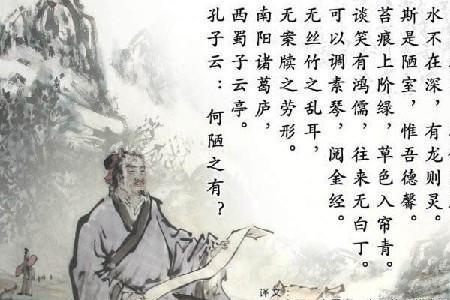 水不在深，有龙则灵。
斯是陋室，惟吾德馨。
苔痕上阶绿，草色入帘青。
谈笑有鸿儒，往来无白丁。
可以调素琴，阅金经。
无丝竹之乱耳，
无案牍之劳形。
南阳诸葛庐，
西蜀子云亭。
孔子云：何陋之有？
译文